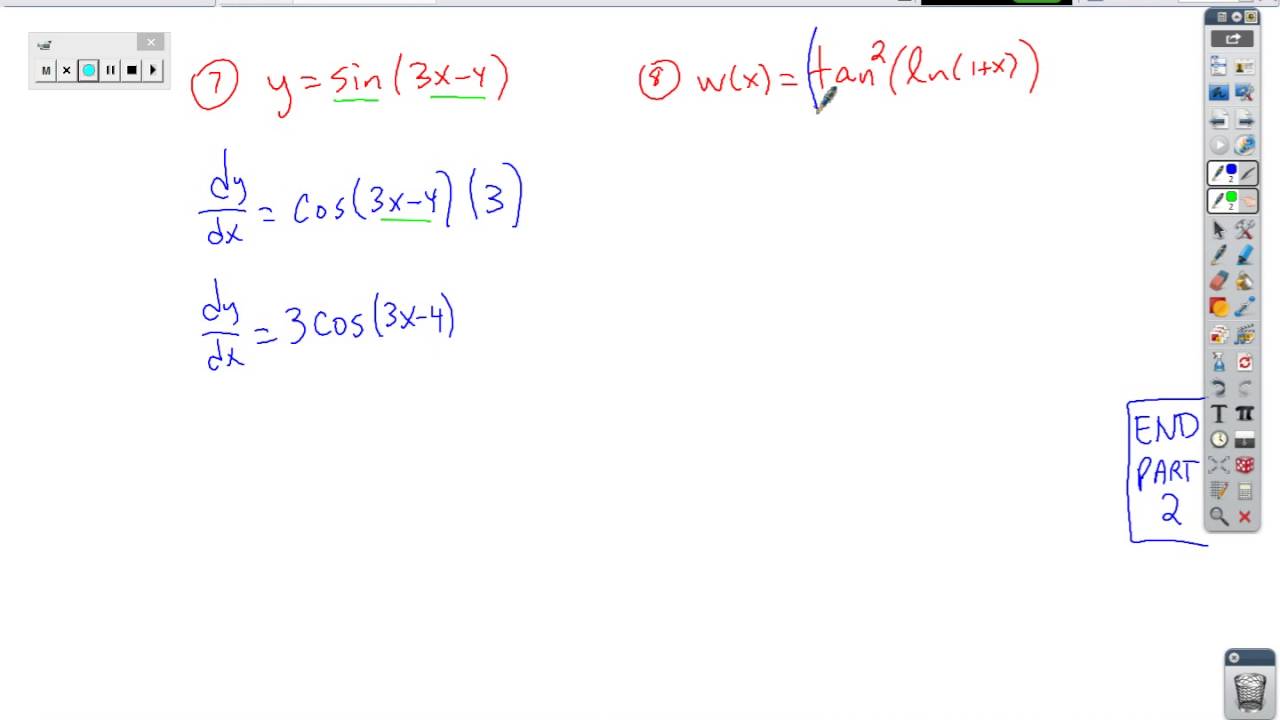 ⑦ y = sin(3x-4)
dy/dx = cos(3x-4)(3)
dy/dx = 3cos(3x-4)
⑧ w(x) = (tan²(ln(1+x))
END
PART
2
M
2
2
T π